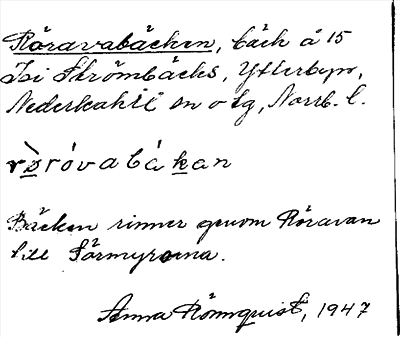 Röravabäcken, bäck å 15
Isi Strömbäcks, Ytterbyn,
Nederkalix sn o tg, Norrb. l.
rò̱róvabáḵan
Bäcken rinner genom Röravan
till Sörmyrorna.
Anna Rönnquist, 1947